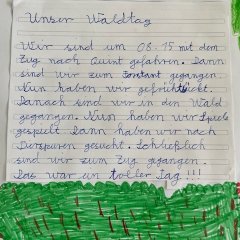 Unser Waldtag
Wir sind um 08.15 mit dem
Zug nach Quint gefahren. Dann
sind wir zum gegangen.
Nun haben wir gefrühstückt.
Danach sind wir in den Wald
gegangen. Nun haben wir Spiele
gespielt. Dann haben wir nach
Tierspuren gesucht. Schließlich
sind wir zum Zug gegangen.
Das war ein toller Tag!!!